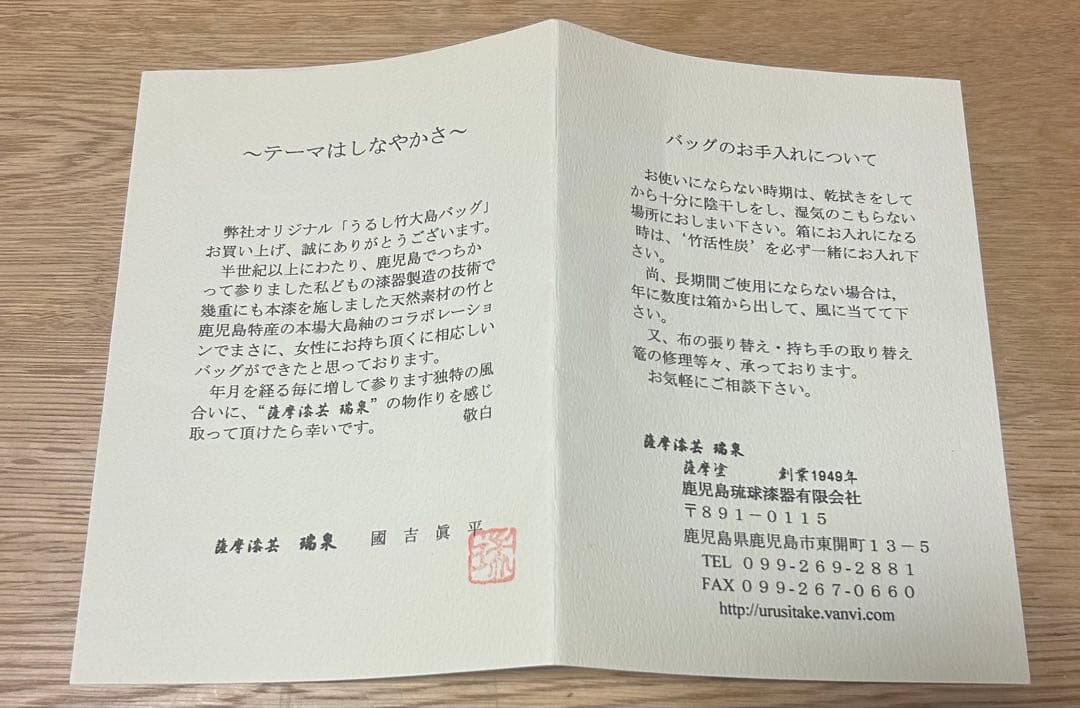 ～テーマはしなやかさ～
弊社オリジナル「うるし竹大島バッグ」
お買い上げ、誠にありがとうございます。
半世紀以上にわたり、鹿児島でつちか
って参りました私どもの漆器製造の技術で
幾重にも本漆を施しました天然素材の竹と
鹿児島特産の本場大島紬のコラボレーショ
ンでまさに、女性にお持ち頂くに相応しい
バッグができたと思っております。
年月を経る毎に増して参ります独特の風
合いに、“薩摩漆芸 瑞泉”の物作りを感じ
取って頂けたら幸いです。 敬白
薩摩漆芸 瑞泉 國吉眞平
バッグのお手入れについて
お使いにならない時期は、乾拭きをして
から十分に陰干しをし、湿気のこもらない
場所におしまい下さい。箱にお入れになる
時は、‘竹活性炭’を必ず一緒にお入れ下
さい。
尚、長期間ご使用にならない場合は，
年に数度は箱から出して、風に当てて下
さい。
又、布の張り替え・持ち手の取り替え
篭の修理等々、承っております。
お気軽にご相談下さい。
薩摩漆芸 瑞泉
薩摩塗 創業1949年
鹿児島琉球漆器有限会社
〒８９１－０１１５
鹿児島県鹿児島市東開町１３－５
TEL ０９９-２６９-２８８１
FAX ０９９-２６７-０６６０
http://urusitake.vanvi.com